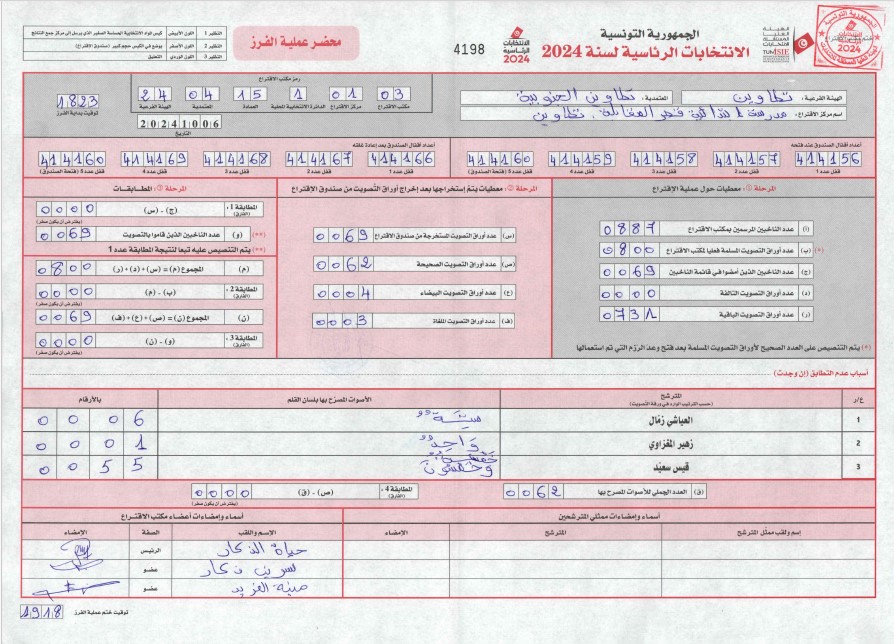 الجمهورية التونسية
الانتخابات الرئاسية لسنة 2024
الانتخابات الرئاسية 2024
4198
محضر عملية الفرز
النظير 1 اللون الأبيض
النظير 2 اللون الأصفر
النظير 3 اللون الوردي التعليق
الهيئة الفرعية: تطاوين المعتمدية: تطاوين الجنوبية
مركز الاقتراع
رمز مكتب الاقتراع
24 04 15 1 01 03
الهيئة الفرعية المعتمدية العمادة الدائرة الانتخابية المحلية مركز الاقتراع مكتب الاقتراع
1823
توقيت بداية الفرز
20241006
التاريخ
أعداد أقفال الصندوق عند فتحه
414156 414157 414158 414159 414160
قفل عدد 1 قفل عدد 2 قفل عدد 3 قفل عدد 4 قفل عدد 5 (فتحة الصندوق)
أعداد أقفال الصندوق بعد إعادة غلقه
414166 414167 414168 414169 414160
قفل عدد 1 قفل عدد 2 قفل عدد 3 قفل عدد 4 قفل عدد 5 (فتحة الصندوق)
المرحلة ①: معطيات حول عملية الإقتراع
(أ) عدد الناخبين المرسمين بمكتب الاقتراع 0887
(*) (ب) عدد أوراق التصويت المسلمة فعليا لمكتب الاقتراع 0800
(ج) عدد الناخبين الذين أمضوا في قائمة الناخبين 0069
(د) عدد أوراق التصويت التالفة 0000
(ر) عدد أوراق التصويت الباقية 0731
(*) يتم التنصيص على العدد الصحيح لأوراق التصويت المسلمة بعد فتح وعد الرزم التي تم استعمالها
المرحلة ②: معطيات يتم إستخراجها بعد إخراج أوراق التصويت من صندوق الإقتراع
(س) عدد أوراق التصويت المستخرجة من صندوق الاقتراع 0069
(ص) عدد أوراق التصويت الصحيحة 0062
(ع) عدد أوراق التصويت البيضاء 0004
(ف) عدد أوراق التصويت الملغاة 0003
المرحلة ③: المطابقات
المطابقة 1: (الفارق) (ج) - (س) 0000
(يفترض أن يكون صفر)
(و) عدد الناخبين الذين قاموا بالتصويت 0069 (**)
(**) يتم التنصيص عليه تبعا لنتيجة المطابقة عدد 1
(م) المجموع (م) = (س) + (د) + (ر) 0800
المطابقة 2: (الفارق) (ب) - (م) 0000
(يفترض أن يكون صفر)
(ن) المجموع (ن) = (ص) + (ع) + (ف) 0069
المطابقة 3: (الفارق) (و) - (ن) 0000
(يفترض أن يكون صفر)
أسباب عدم التطابق (إن وجدت)
ع/ر المترشح الأصوات المصرح بها بلسان القلم بالأرقام
(حسب الترتيب الوارد في ورقة التصويت)
1 العياشي زمّال ستة 0006
2 زهير المغزاوي واحد 0001
3 قيس سعيّد خمسة وخمسون 0055
(ق) العدد الجملي للأصوات المصرح بها 0062
المطابقة 4: (الفارق) (ص) - (ق) 0000
(يفترض أن يكون صفر)
أسماء وإمضاءات ممثلي المترشحين
إسم ولقب ممثل المترشح المترشح الإمضاء
أسماء وإمضاءات أعضاء مكتب الاقتراع
الإسم واللقب الصفة الإمضاء
حياة الذكار الرئيس
نسرين ذكار عضو
عضو
توقيت ختم عملية الفرز 1918